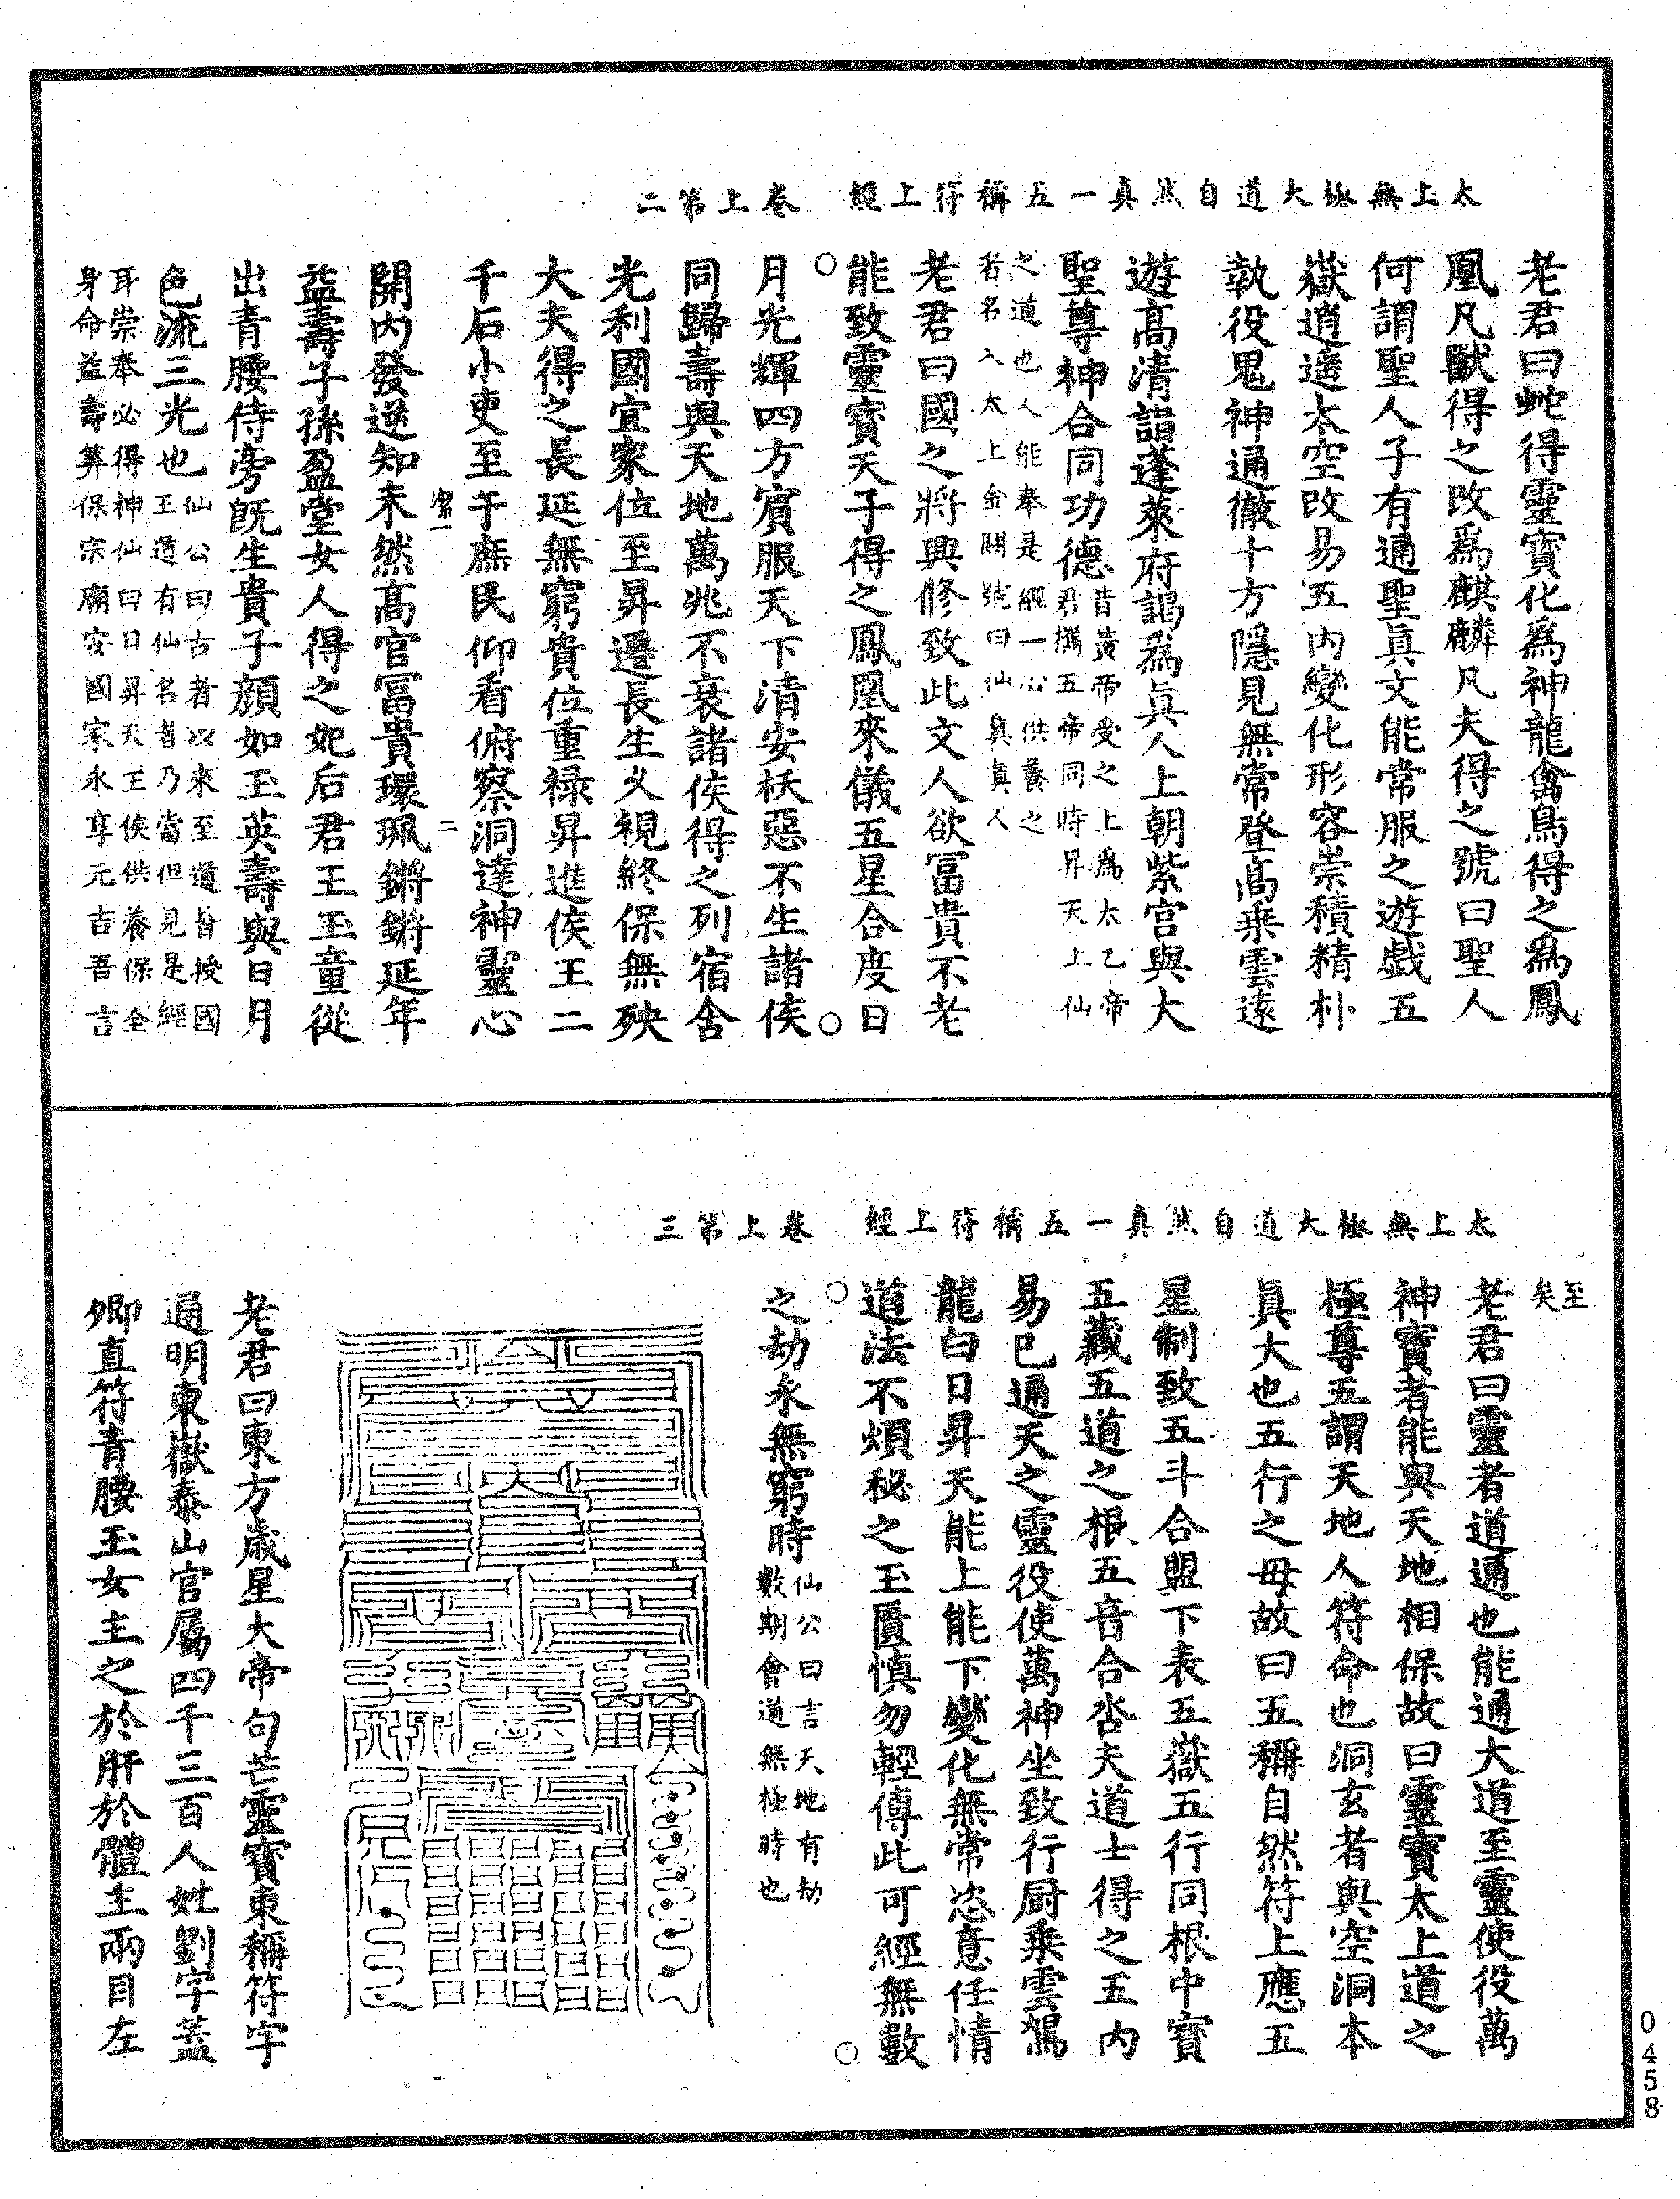 太上無極大道自然真一五稱符上經　卷上第二
老君曰蛇得靈寶化爲神龍禽鳥得之爲鳳
凰凡獸得之改爲麒麟凡夫得之號曰聖人
何謂聖人子有通聖眞文能常服之遊戲五
嶽逍遥太空改易五內變化形容崇積精朴
執役鬼神通徹十方隱見無常登高乗雲遠
遊高清詣蓬萊府謁爲眞人上朝紫宫與大
聖尊神合同功德昔黃帝受之上爲太乙帝
君攜五帝同時昇天上仙
之道也人能奉是經一心供養之
若名入太上金闕號曰仙真眞人
老君曰國之將興修致此文人欲冨貴不老
能致靈寶天子得之鳳凰來儀五星合度日
月光輝四方賓服天下清安妖惡不生諸侯
同歸壽與天地萬兆不衰諸侯得之列宿舍
光利國宜家位至昇遷長生乆視終保無殃
大夫得之長延無窮貴位重禄昇進侯王二
千石小吏至于庶民仰看俯察洞達神靈心
開內發逆知未然高官冨貴環珮鏘鏘延年
益壽子孫盈堂女人得之妃后君王玉童從
出青腰侍旁旣生貴子顔如玉英壽與日月
色流三光也仙公曰古者以來至道皆授國
王道有仙名者乃當但見是經
耳崇奉必得神仙白日昇天王侯供養保全
身命益壽筭保宗廟安國家永享元吉吾言
太上無極大道自然真一五稱符上經　卷上第三
至
矣
老君曰靈者道通也能通大道至靈使役萬
神寶者能與天地相保故曰靈寶太上道之
極尊五謂天地人符命也洞玄者與空洞本
眞大也五行之毋故曰五稱自然符上應五
星制致五斗合盟下表五嶽五行同根中寳
五藏五道之根五音合沓夫道士得之五內
易已通天之靈役使萬神坐致行厨乗雲駕
龍白日昇天能上能下變化無常恣意任情
道法不煩秘之玉匱慎勿輕傳此可經無數
之劫永無窮時仙公曰言天地有劫
數期會道無極時也
老君曰東方歲星大帝句芒靈寶東稱符字
通明東嶽泰山官屬四千三百人姓劉字蓋
卿直符青腰玉女主之於肝於體主兩目左
0458